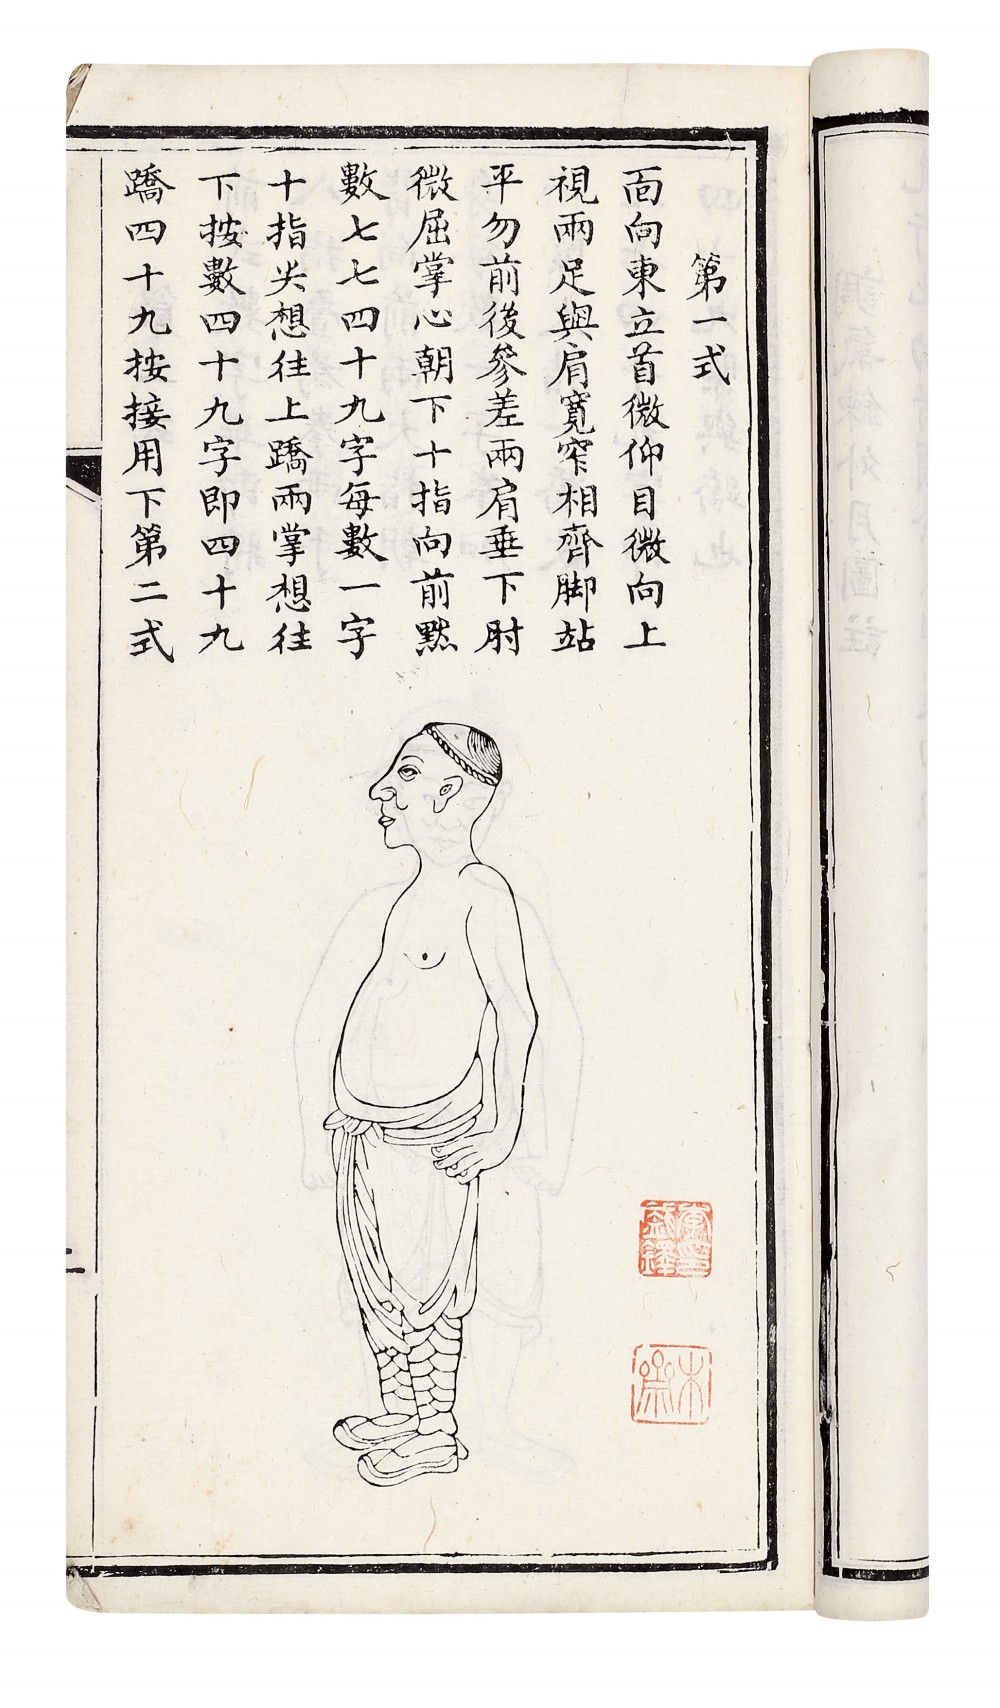 第一式
面向東立首微仰目微向上
視兩足與肩寬窄相齊脚站
平勿前後參差兩肩垂下肘
微屈掌心朝下十指向前默
數七七四十九字每數一字
十指尖想往上蹻兩掌想往
下按數四十九字即四十九
蹻四十九按接用下第二式